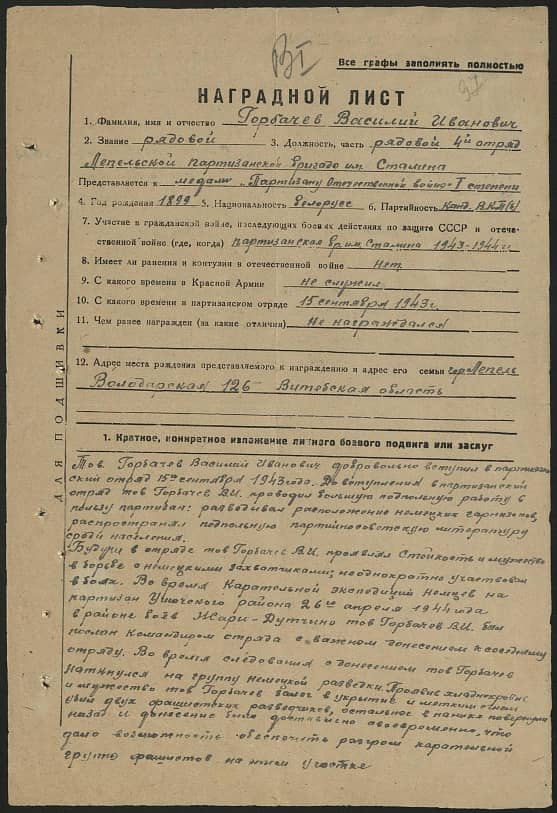 ВI
Все графы заполнять полностью
37
НАГРАДНОЙ ЛИСТ
1. Фамилия, имя и отчество Горбачев Василий Иванович
2. Звание рядовой 3. Должность, часть рядовой 4й отряд
Лепельской партизанской бригады им. Сталина
Представляется к медали „Партизану Отечественной войны" I степени
4. Год рождения 1899 5. Национальность белорусс 6. Партийность Канд. ВКП(б)
7. Участие в гражданской войне, последующих боевых действиях по защите СССР и отече-
ственной войне (где, когда) партизанская бр. им. Сталина 1943-1944 г.
8. Имеет ли ранения и контузии в отечественной войне Нет
9. С какого времени в Красной Армии не служил
10. С какого времени в партизанском отряде 15 сентября 1943 г.
11. Чем ранее награжден (за какие отличия) Не награждался
12. Адрес места рождения представляемого к награждению и адрес его семьи гор Лепель
Володарская 126 Витебская область
ДЛЯ ПОДШИВКИ
1. Краткое, конкретное изложение личного боевого подвига или заслуг
Тов. Горбачев Василий Иванович добровольно вступил в партизан-
ский отряд 15го сентября 1943 года. До вступления в партизанский
отряд тов Горбачев В.И. проводил большую подпольную работу в
пользу партизан: разведывал расположение немецких гарнизонов,
распространял подпольную партийносоветскую литературу
среди населения.
Будучи в отряде тов Горбачев В.И. проявлял стойкость и мужество
в борьбе с немецкими захватчиками; неоднократно участвовал
в боях. Во время Карательной экспедиции немцев на
партизан Ушачского района 26го апреля 1944 года
в районе боев Жари - Дутчино тов Горбачев В.И. был
послан командиром отряда с важным донесением к соседнему
отряду. Во время следования с донесением тов Горбачев
наткнулся на группу немецкой разведки. Проявив хладнокровие
и мужество тов Горбачев залег в укрытие и метким огнем
убил двух фашистских разведчиков, остальные в панике повернули
назад и донесение было доставлено своевременно, что
дало возможность обеспечить разгром карательной
группы фашистов на этом участке